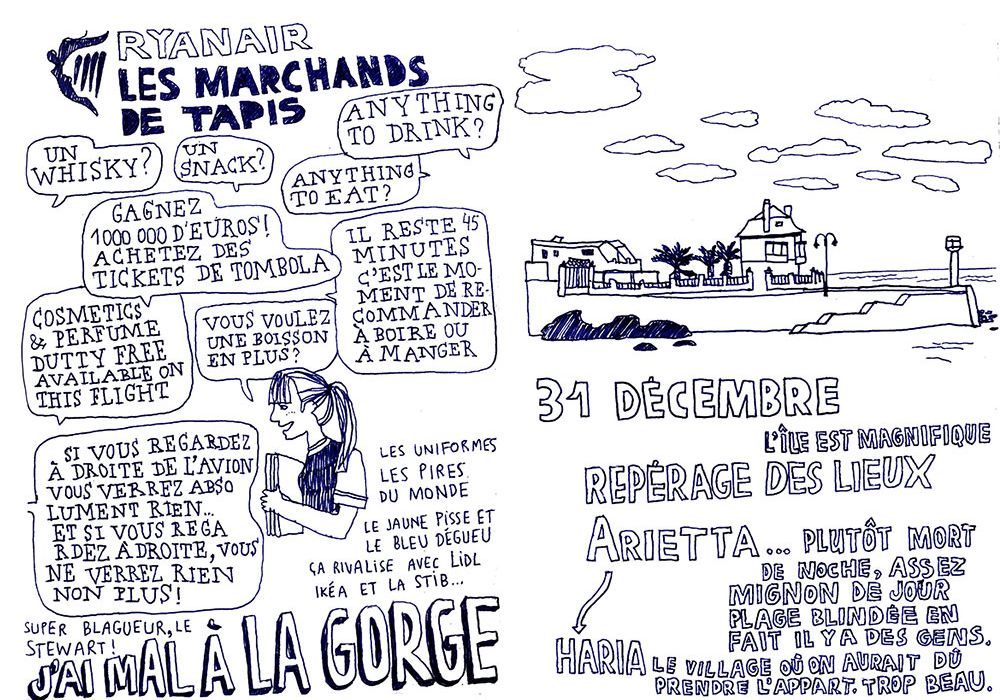 RYANAIR
LES MARCHANDS
DE TAPIS
UN
WHISKY?
UN
SNACK?
ANYTHING
TO DRINK?
ANYTHING
TO EAT?
GAGNEZ
1000 000 D'EUROS!
ACHETEZ DES
TICKETS DE TOMBOLA
IL RESTE 45
MINUTES
C'EST LE MO-
MENT DE RE-
COMMANDER
À BOIRE OU
À MANGER
COSMETICS
& PERFUME
DUTTY FREE
AVAILABLE ON
THIS FLIGHT
VOUS VOULEZ
UNE BOISSON
EN PLUS?
SI VOUS REGARDEZ
À DROITE DE L'AVION
VOUS VERREZ ABSO
LUMENT RIEN...
ET SI VOUS REGA
RDEZ À DROITE, VOUS
NE VERREZ RIEN
NON PLUS!
LES UNIFORMES
LES PIRES
DU MONDE
LE JAUNE PISSE ET
LE BLEU DÉGUEU
ÇA RIVALISE AVEC LIDL
IKÉA ET LA STIB...
SUPER BLAGUEUR, LE
STEWART!
J'AI MAL À LA GORGE
31 DÉCEMBRE
L'ÎLE EST MAGNIFIQUE
REPÉRAGE DES LIEUX
ARIETTA... PLUTÔT MORT
DE NOCHE, ASSEZ
MIGNON DE JOUR
PLAGE BLINDÉE EN
FAIT IL Y A DES GENS.
HARIA LE VILLAGE OÙ ON AURAIT DÛ
PRENDRE L'APPART. TROP BEAU.